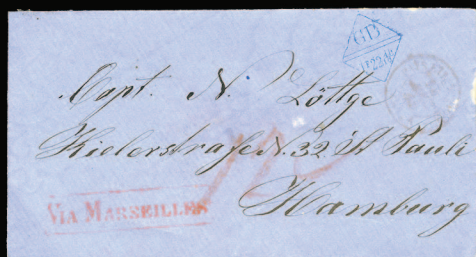 GB
1F22c
Capt. N. Löttge
Kielerstrafse N. 32 St Pauli
Hamburg
VIA MARSEILLES